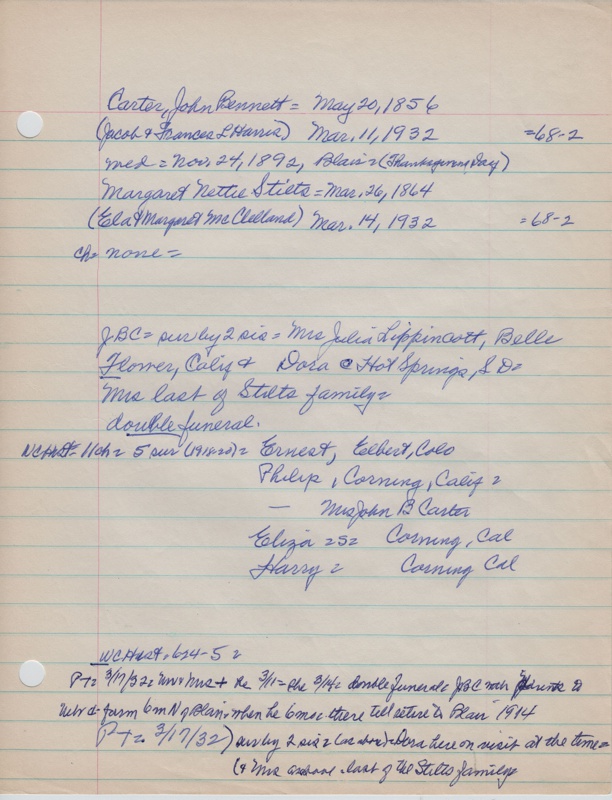 Carter, John Bennett = May 20, 1856
(Jacob & Frances L Harris) Mar. 11, 1932 = 68-2
med = Nov. 24, 1892, Blair = (Thanksgiving Day)
Margaret Nettie Stilts = Mar. 26, 1864
(Ela & Margaret McClelland) Mar. 14, 1932 = 68-2
ch = none =
JBC = sur by 2 sis = Mrs Julia Lippincott, Belle
Flower, Calif & Dora @ Hot Springs, S.D =
Mrs last of Stilts family =
double funeral.
WCHist = 11 ch = 5 sur (1918-20) = Ernest, Elbert, Colo
Philip, Corning, Calif =
— Mrs John B Carter
Eliza = s = Corning, Cal
Harry = Corning Cal
WCHist = 624-5 =
PT = 3/17/32 = Mr & Mrs + he 3/11 = she 3/14 = double funeral = JBC with parents to
Neb & farm 6 m N of Blair when he 6 mo = there till retire to Blair 1914
PT = 3/17/32) sur by 2 sis = (as above) - Dora here on visit at the time =
(& Mrs as above last of the Stilts family